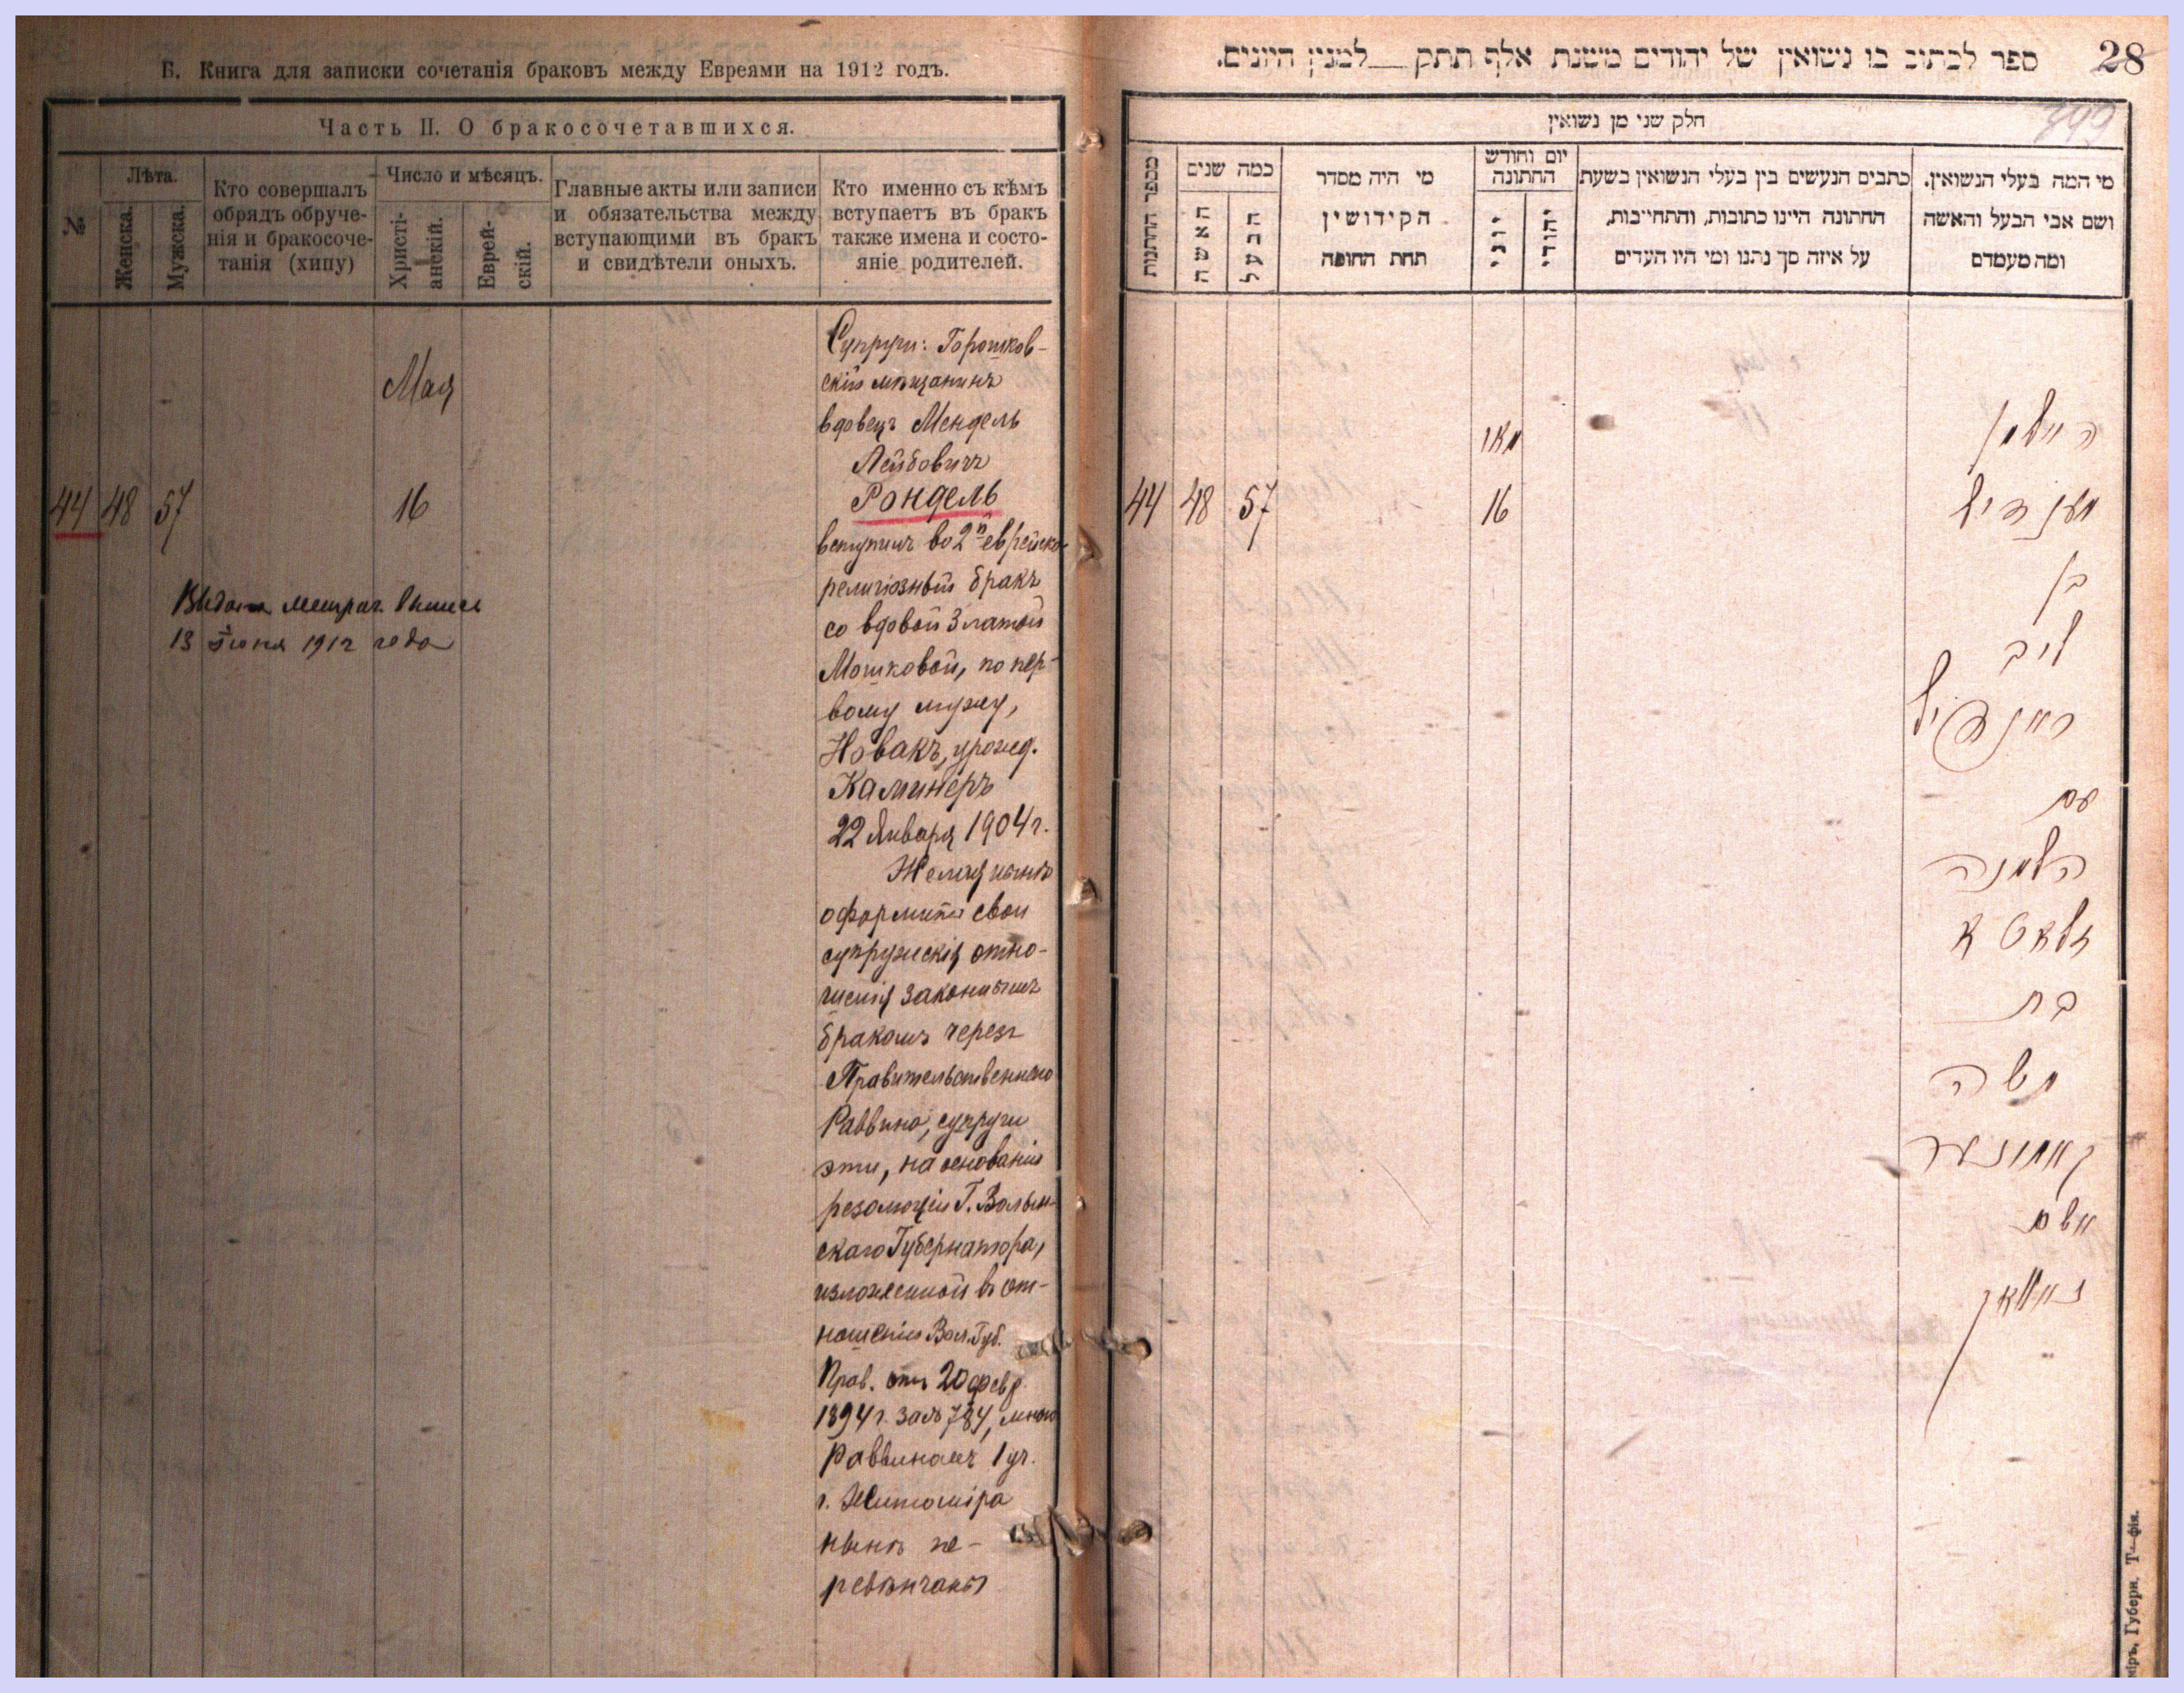 Б. Книга для записки сочетанія браковъ между Евреями на 1912 годъ.
Часть II. О бракосочетавшихся.
№
Лѣта.
Женска.
Мужска.
Кто совершалъ
обрядъ обруче-
нія и бракосоче-
танія (хипу)
Число и мѣсяцъ.
Христі-
анскій.
Еврей-
скій.
Главные акты или записи
и обязательства между
вступающими въ бракъ
и свидѣтели оныхъ.
Кто именно съ кѣмъ
вступаетъ въ бракъ
также имена и состо-
яніе родителей.
44 48 57
Мая
16
Выдана метрич. выпись
13 Іюня 1912 года
Супруги: Горошков-
скій мѣщанинъ
вдовецъ Мендель
Лейбовичъ
Рондель
вступилъ во 2й еврейско-
религіозный бракъ
со вдовой Златой
Мошковой, по пер-
вому мужу,
Новакъ, урожд.
Каминеръ
22 Января 1904 г.
Желая нынѣ
оформить свои
супружескія отно-
шенія законнымъ
бракомъ через
Правительственнаго
Раввина, супруги
эти, на основаніи
резолюціи Г. Волын-
скаго Губернатора,
изложенной въ от-
ношеніи Вол. Губ.
Прав. отъ 20 февр.
1894 г. за № 784, мною
Раввиномъ 1 уч.
г. Житоміра
нынѣ пе-
ревѣнчаны
28
ספר לכתוב בו נשואין של יהודים משנת אלף תתק למנין היונים.
399
חלק שני מן נשואין
מספר החתנות
כמה שנים
האשה
הבעל
מי היה מסדר
הקידושין
תחת החופה
יום וחודש
החתונה
יוני
יהודי
כתבים הנעשים בין בעלי הנשואין בשעת
החתונה היינו כתובות, והתחייבות,
על איזה סך נתנו ומי היו העדים
מי המה בעלי הנשואין.
ושם אבי הבעל והאשה
ומה מעמדם
44 48 57
מאי
16
מענדיל
בן
ליב
ראנדיל
עם
האלמנה
זלאטא
בת
משה
קאמינער
נאוואק
міръ, Губерн. Т—фія.